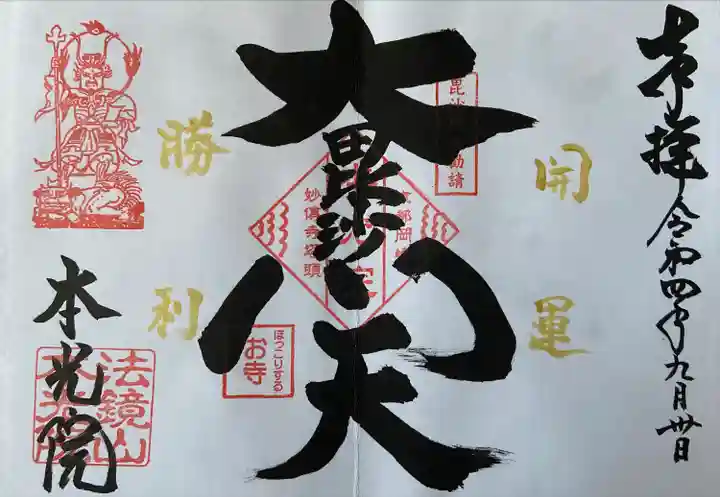 奉拝 令和四年九月卅日
開運
大毘沙門天
勝利
毘沙
勧請
京都岡崎
妙傳寺塔頭
ほっこりする
お寺
本光院
法鏡山